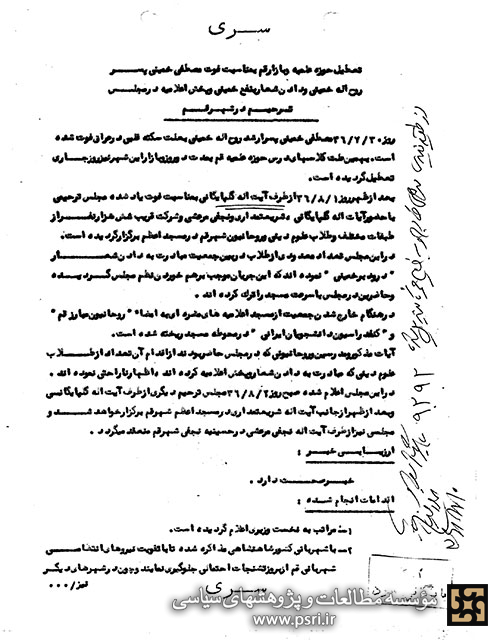 سری
تعطیل حوزه علمیه و بازار قم بمناسبت فوت مصطفی خمینی پسر
روح اله خمینی و دادن شعار بنفع خمینی و پخش اعلامیه در مجلس
ترحیم در شهر قم
روز ۳۶/۷/۳۰ مصطفی خمینی پسر ارشد روح اله خمینی بعلت سکته قلبی در عراق فوت شده
است. بهمین علت کلاسهای درس حوزه علمیه قم بمدت دو روز و بازار این شهر نیز روز جاری
تعطیل گردیده است.
بعد از ظهر روز ۳۶/۸/۱ از طرف آیت اله گلپایگانی بمناسبت فوت یاد شده مجلس ترحیمی
با حضور آیات اله گلپایگانی، شریعتمداری و نجفی مرعشی و شرکت قریب شش هزار نفر از
طبقات مختلف و طلاب علوم دینی و روحانیون شهر قم در مسجد اعظم برگزار گردیده است.
در این مجلس تعداد معدودی از طلاب در بین جمعیت مبادرت به دادن شعار
" درود بر خمینی " نموده اند که این جریان موجب برهم خوردن نظم مجلس گردیده
و حاضرین در مجلس با سرعت مسجد را ترک کرده اند.
در هنگام خارج شدن جمعیت از مسجد اعلامیه های مضره ای به امضاء " روحانیون مبارز قم "
و " کنفدراسیون دانشجویان ایرانی " در محوطه مسجد ریخته شده است.
آیات مذکور و مدرسین و روحانیونی که در مجلس حاضر بودند از اقدام آن تعداد از طلاب
علوم دینی که مبادرت به دادن شعار و پخش اعلامیه کرده اند اظهار ناراحتی نموده اند.
در این مجلس اعلام شده صبح روز ۳۶/۸/۲ مجلس ترحیم دیگری از طرف آیت اله گلپایگانی
و بعد از ظهر از جانب آیت اله شریعتمداری در مسجد اعظم شهر قم برگزار خواهد شد و
مجلسی نیز از طرف آیت اله نجفی مرعشی در حسینیه نجفی شهر قم منعقد میگردد.
ارزیابی خبر :
خبر صحت دارد.
اقدامات انجام شده :
۱- مراتب به نخست وزیری اعلام گردیده است.
۲- با شهربانی کشور شاهنشاهی مذاکره شده تا با تقویت نیروهای انتظامی
شهربانی قم از بروز تشنجات احتمالی جلوگیری نمایند و چون در شهرهای دیگر
نیز/۰۰۰
سری
۹۲۹۲
مؤسسه مطالعات و پژوهشهای سیاسی
www.psri.ir